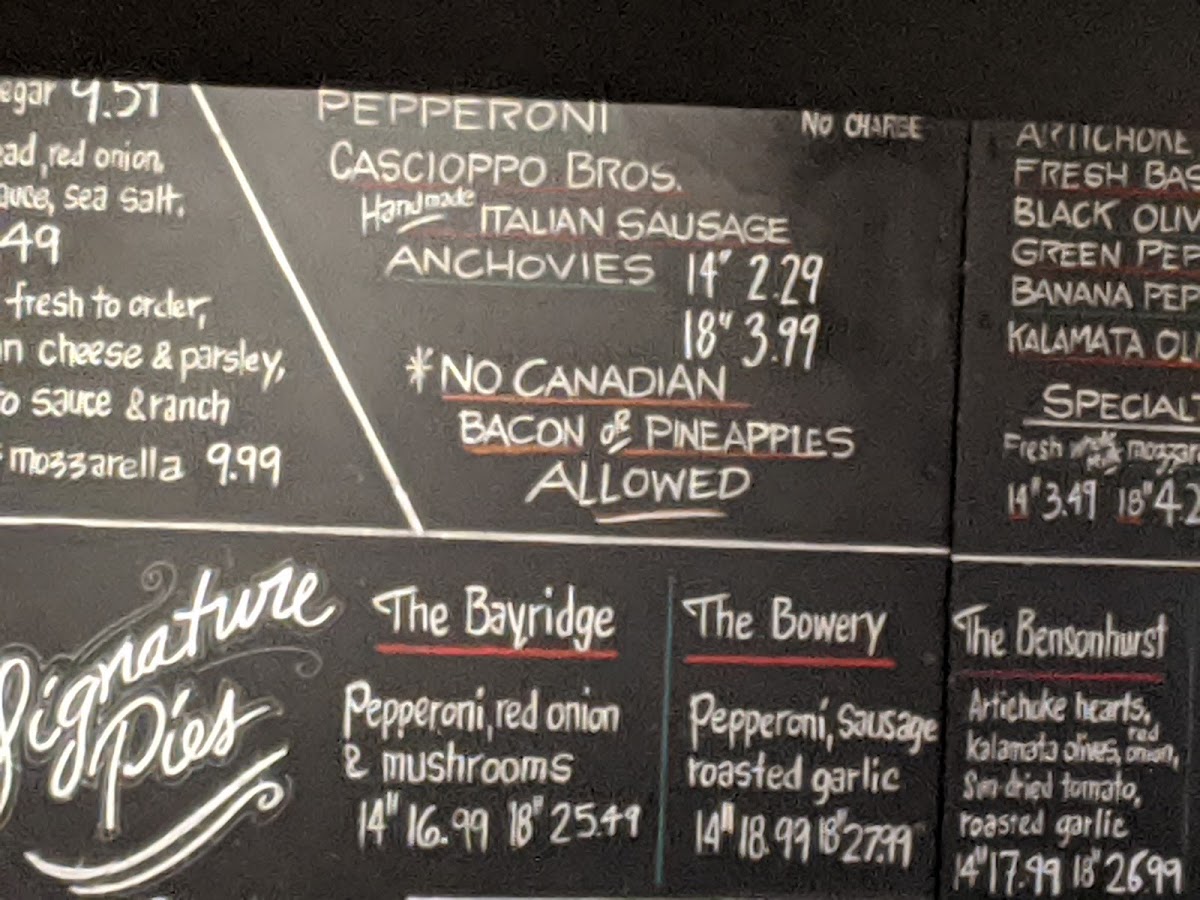 egar 9.59
ad, red onion,
auce, sea salt.
49
fresh to order,
n cheese & parsley,
o sauce & ranch
mozzarella 9.99
PEPPERONI
NO CHARGE
CASCIOPPO BROS.
Handmade ITALIAN SAUSAGE
ANCHOVIES 14" 2.29
18" 3.99
*NO CANADIAN
BACON OR PINEAPPLES
ALLOWED
ARTICHOKE
FRESH BAS
BLACK OLIV
GREEN PEP
BANANA PEP
KALAMATA OLI
SPECIAL
Fresh whole milk mozzare
14" 3.49 18" 4.2
Signature
Pies
The Bayridge
Pepperoni, red onion
& mushrooms
14" 16.99 18" 25.49
The Bowery
Pepperoni, Sausage
roasted garlic
14" 18.99 18" 27.99
The Bensonhurst
Artichoke hearts,
kalamata olives, red onion,
Sun dried tomato,
roasted garlic
14" 17.99 18" 26.99